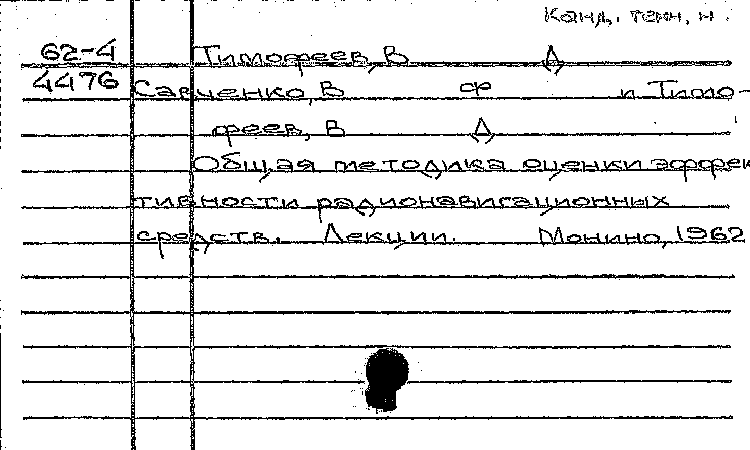 Канд. техн. н.
62-4 Тимофеев, В Д
4476 Савченко, В Ф и Тимо-
феев, В Д
Общая методика оценки эффек
тивности радионавигационных
средств. Лекции. Монино, 1962